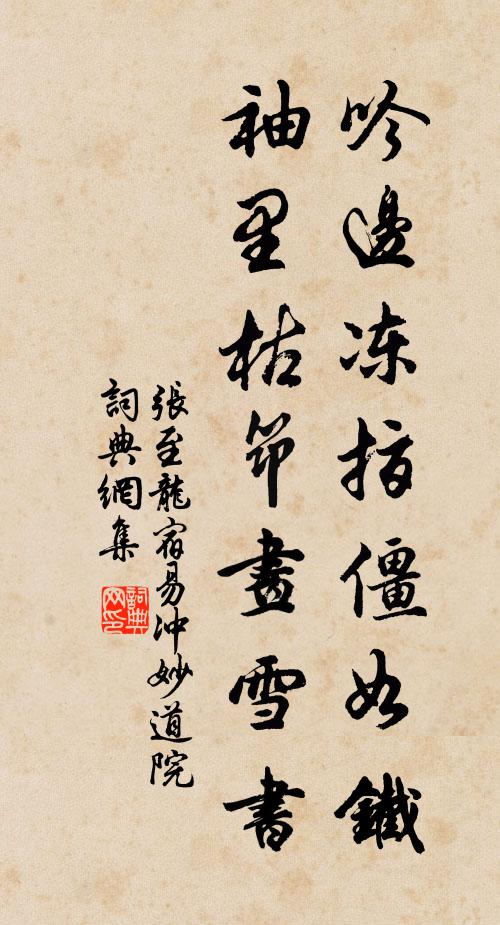 吟邊冻指僵如鐵
袖里枯筇畫雪書
張至龍宿易冲妙道院
詞典網集
詞典网印